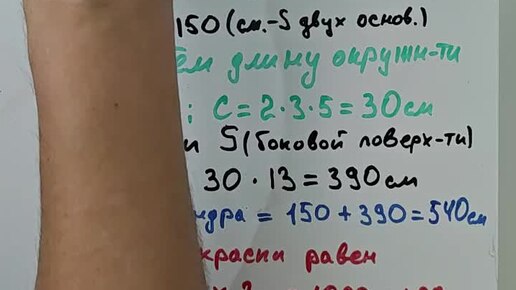 150 (см.-S двух основ.)
ём длину окружн-ти
: C = 2·3·5 = 30см
и S (боковой поверх-ти)
30 · 13 = 390см
ндра = 150 + 390 = 540см
краски равен